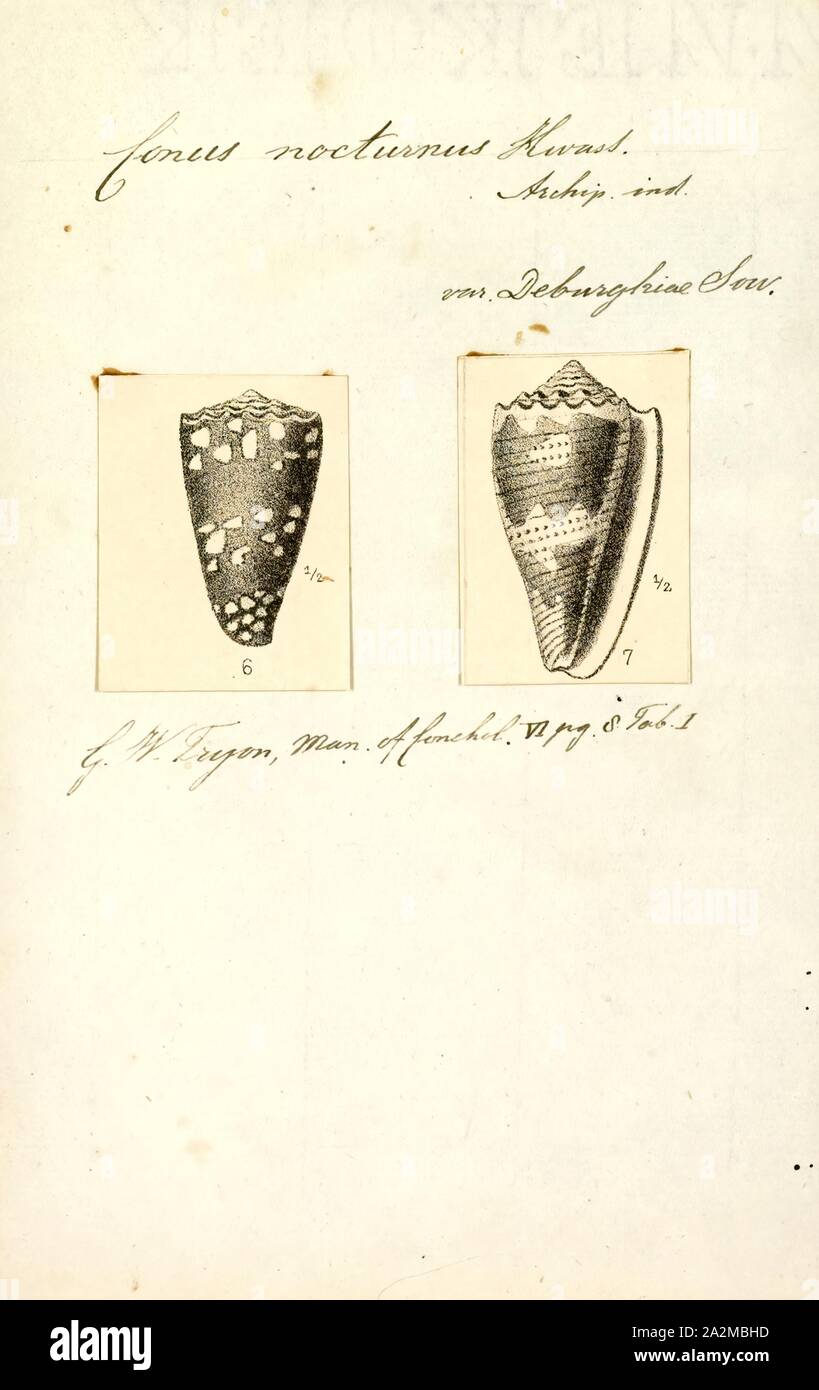 Conus nocturnus Hwass.
Archip. ind.
var. Deburghiae Sow.
1/2
6
1/2
7
G. W. Tryon, Man. of Conchol. VI pg. 8 Tab. I
alamy
Image ID: 2A2MBHD
www.alamy.com